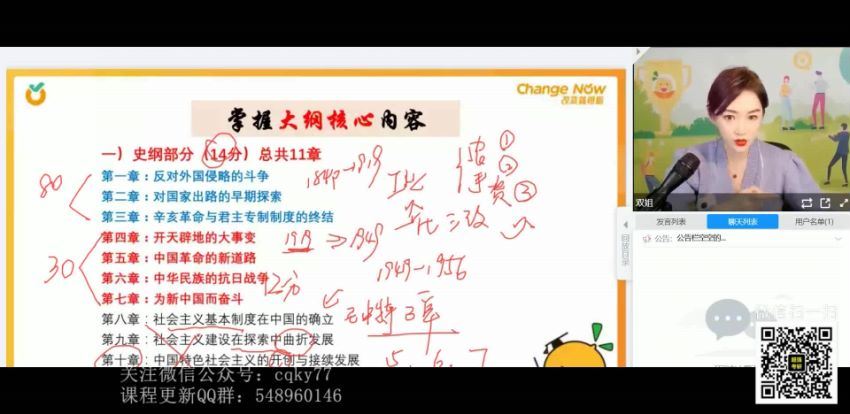 Change Now
改变就得脑
掌握大纲核心内容
一）史纲部分（14分）总共11章
第一章：反对外国侵略的斗争
第二章：对国家出路的早期探索
第三章：辛亥革命与君主专制制度的终结
第四章：开天辟地的大事变
第五章：中国革命的新道路
第六章：中华民族的抗日战争
第七章：为新中国而奋斗
第八章：社会主义基本制度在中国的确立
第九章：社会主义建设在探索中曲折发展
第十章：中国特色社会主义的开创与接续发展
80
30
1840-1919
1919
1949
12分
1949-1956
①
②
③
5、6、7
关注微信公众号：cqky77
课程更新QQ群：548960146
双姐
发言列表
聊天列表
用户名单(1)
公告：
公告栏空空的...
回放目录
微信扫一扫